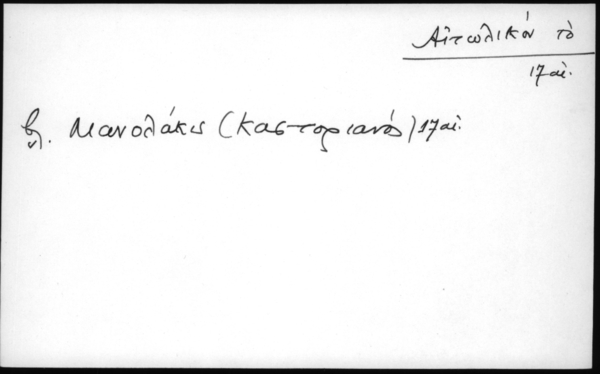 Αἰτωλικόν τὸ
17 αἰ.
βλ. Μανολάκις (Καστοριανός) 17 αἰ.